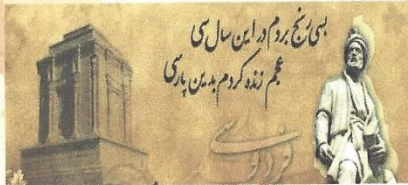 بسی رنج بردم در این سال سی
عجم زنده کردم بدین پارسی
فردوسی